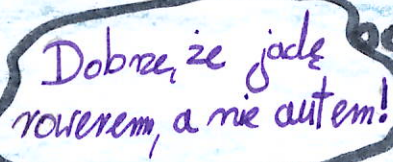 Dobrze, że jadę
rowerem, a nie autem!